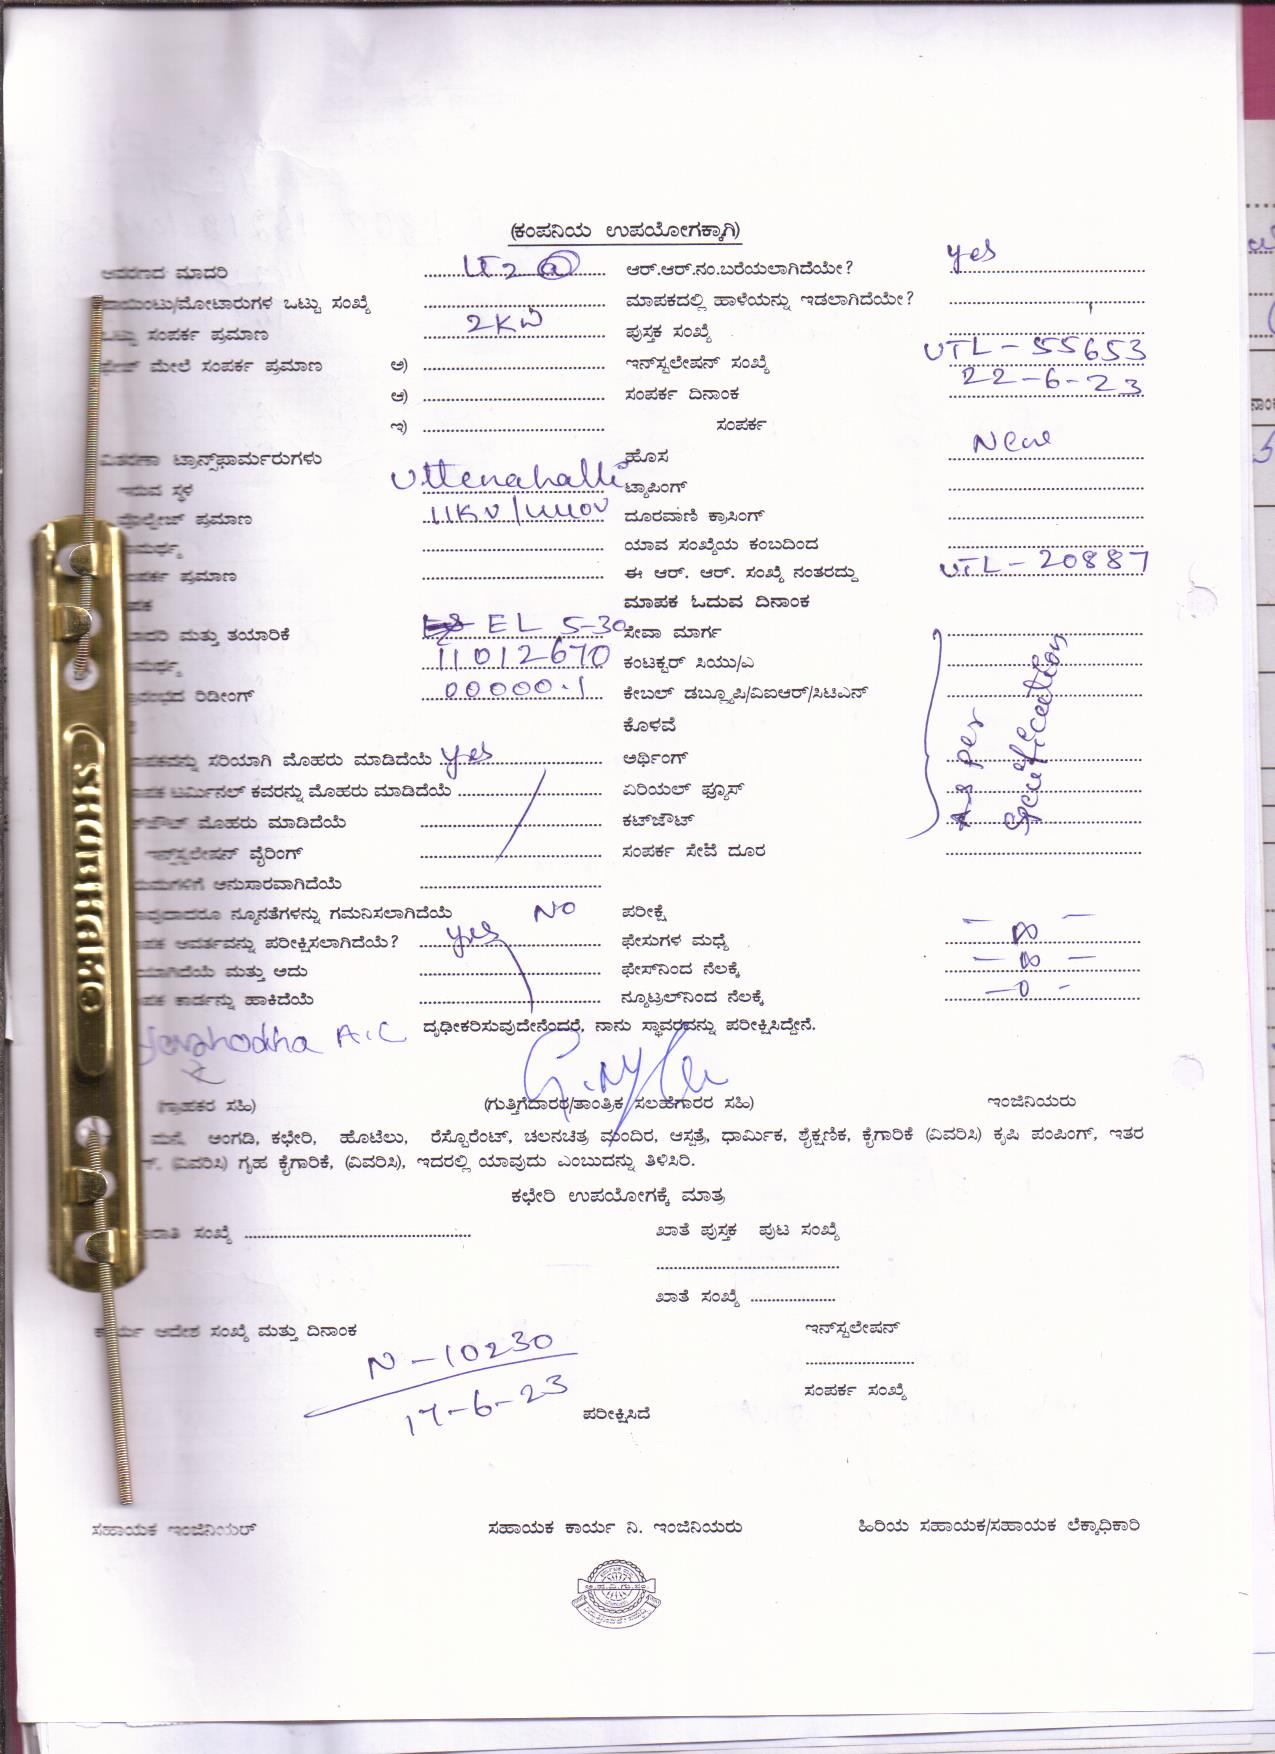 (ಕಂಪನಿಯ ಉಪಯೋಗಕ್ಕಾಗಿ)
ಆವರಣದ ಮಾದರಿ LT2 (a) ಆರ್.ಆರ್.ನಂ.ಬರೆಯಲಾಗಿದೆಯೇ? yes
ಪಾಯಿಂಟು/ಮೋಟಾರುಗಳ ಒಟ್ಟು ಸಂಖ್ಯೆ ಮಾಪಕದಲ್ಲಿ ಹಾಳೆಯನ್ನು ಇಡಲಾಗಿದೆಯೇ?
ಒಟ್ಟು ಸಂಪರ್ಕ ಪ್ರಮಾಣ 2KW ಪುಸ್ತಕ ಸಂಖ್ಯೆ
ಫೇಜ್ ಮೇಲೆ ಸಂಪರ್ಕ ಪ್ರಮಾಣ ಅ) ಇನ್‌ಸ್ಟಲೇಷನ್ ಸಂಖ್ಯೆ UTL-55653
ಆ) ಸಂಪರ್ಕ ದಿನಾಂಕ 22-6-23
ಇ) ಸಂಪರ್ಕ
ವಿತರಣಾ ಟ್ರಾನ್ಸ್‌ಫಾರ್ಮರುಗಳು ಹೊಸ New
ಇರುವ ಸ್ಥಳ Uttenahalli ಟ್ಯಾಪಿಂಗ್
ವೊಲ್ಟೇಜ್ ಪ್ರಮಾಣ 11KV/440V ದೂರವಾಣಿ ಕ್ರಾಸಿಂಗ್
ಮರ್ಥ್ಯ ಯಾವ ಸಂಖ್ಯೆಯ ಕಂಬದಿಂದ
ಪರ್ಕ ಪ್ರಮಾಣ ಈ ಆರ್. ಆರ್. ಸಂಖ್ಯೆ ನಂತರದ್ದು UTL-20887
ಪಕ ಮಾಪಕ ಓದುವ ದಿನಾಂಕ
ಾದರಿ ಮತ್ತು ತಯಾರಿಕೆ EL 5-30 ಸೇವಾ ಮಾರ್ಗ
ಮರ್ಥ್ಯ 11012670 ಕಂಟಕ್ಟರ್ ಸಿಯು/ಎ
ರಂಭದ ರಿಡೀಂಗ್ 00000.1 ಕೇಬಲ್ ಡಬ್ಲ್ಯೂಪಿ/ವಿಐಆರ್/ಸಿಟಿಎನ್
ಕೊಳವೆ
ಪಕವನ್ನು ಸರಿಯಾಗಿ ಮೊಹರು ಮಾಡಿದೆಯೆ yes ಅರ್ಥಿಂಗ್ As per
ಪಕ ಟರ್ಮಿನಲ್ ಕವರನ್ನು ಮೊಹರು ಮಾಡಿದೆಯೆ ಏರಿಯಲ್ ಫ್ಯೂಸ್ specification
ಜೌಟ್ ಮೊಹರು ಮಾಡಿದೆಯೆ ಕಟ್‌ಜೌಟ್
ಇನ್‌ಸ್ಟಲೇಷನ್ ವೈರಿಂಗ್ ಸಂಪರ್ಕ ಸೇವೆ ದೂರ
ಯಮಗಳಿಗೆ ಅನುಸಾರವಾಗಿದೆಯೆ
ವುದಾದರೂ ನ್ಯೂನತೆಗಳನ್ನು ಗಮನಿಸಲಾಗಿದೆಯೆ NO ಪರೀಕ್ಷೆ
ಪಕ ಆವರ್ತವನ್ನು ಪರೀಕ್ಷಿಸಲಾಗಿದೆಯೆ? yes ಫೇಸುಗಳ ಮಧ್ಯೆ — ∞ —
ಯಾಗಿದೆಯೆ ಮತ್ತು ಅದು ಫೇಸ್‌ನಿಂದ ನೆಲಕ್ಕೆ — ∞ —
ಪಕ ಕಾರ್ಡನ್ನು ಹಾಕಿದೆಯೆ ನ್ಯೂಟ್ರಲ್‌ನಿಂದ ನೆಲಕ್ಕೆ —0-
Yashodha A.C ದೃಢೀಕರಿಸುವುದೇನೆಂದರೆ, ನಾನು ಸ್ಥಾವರವನ್ನು ಪರೀಕ್ಷಿಸಿದ್ದೇನೆ.
(ಗ್ರಾಹಕರ ಸಹಿ) (ಗುತ್ತಿಗೆದಾರರ/ತಾಂತ್ರಿಕ ಸಲಹೆಗಾರರ ಸಹಿ) ಇಂಜಿನಿಯರು
ಮನೆ, ಅಂಗಡಿ, ಕಛೇರಿ, ಹೊಟೆಲು, ರೆಸ್ಟೊರೆಂಟ್, ಚಲನಚಿತ್ರ ಮಂದಿರ, ಆಸ್ಪತ್ರೆ, ಧಾರ್ಮಿಕ, ಶೈಕ್ಷಣಿಕ, ಕೈಗಾರಿಕೆ (ವಿವರಿಸಿ) ಕೃಷಿ ಪಂಪಿಂಗ್, ಇತರ
(ವಿವರಿಸಿ) ಗೃಹ ಕೈಗಾರಿಕೆ, (ವಿವರಿಸಿ), ಇದರಲ್ಲಿ ಯಾವುದು ಎಂಬುದನ್ನು ತಿಳಿಸಿರಿ.
ಕಛೇರಿ ಉಪಯೋಗಕ್ಕೆ ಮಾತ್ರ
ರಾತಿ ಸಂಖ್ಯೆ ಖಾತೆ ಪುಸ್ತಕ ಪುಟ ಸಂಖ್ಯೆ
ಖಾತೆ ಸಂಖ್ಯೆ
ಕಾರ್ಯ ಆದೇಶ ಸಂಖ್ಯೆ ಮತ್ತು ದಿನಾಂಕ ಇನ್‌ಸ್ಟಲೇಷನ್
N-10230
17-6-23 ಸಂಪರ್ಕ ಸಂಖ್ಯೆ
ಪರೀಕ್ಷಿಸಿದೆ
ಸಹಾಯಕ ಇಂಜಿನಿಯರ್ ಸಹಾಯಕ ಕಾರ್ಯ ನಿ. ಇಂಜಿನಿಯರು ಹಿರಿಯ ಸಹಾಯಕ/ಸಹಾಯಕ ಲೆಕ್ಕಾಧಿಕಾರಿ
SHUBHAM